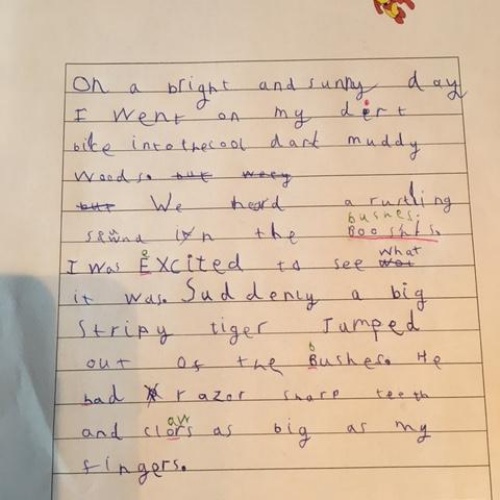 On a bright and sunny day
I went on my dirt
bike into the cool dark muddy
woods. but weey
but We heard a rustling
bushes.
sound in the Booshis.
what
I was Excited to see wat
it was. Suddenly a big
Stripy tiger Jumped
out of the Bushes. He
had razor sharp teeth
aw
and clors as big as my
fingers.